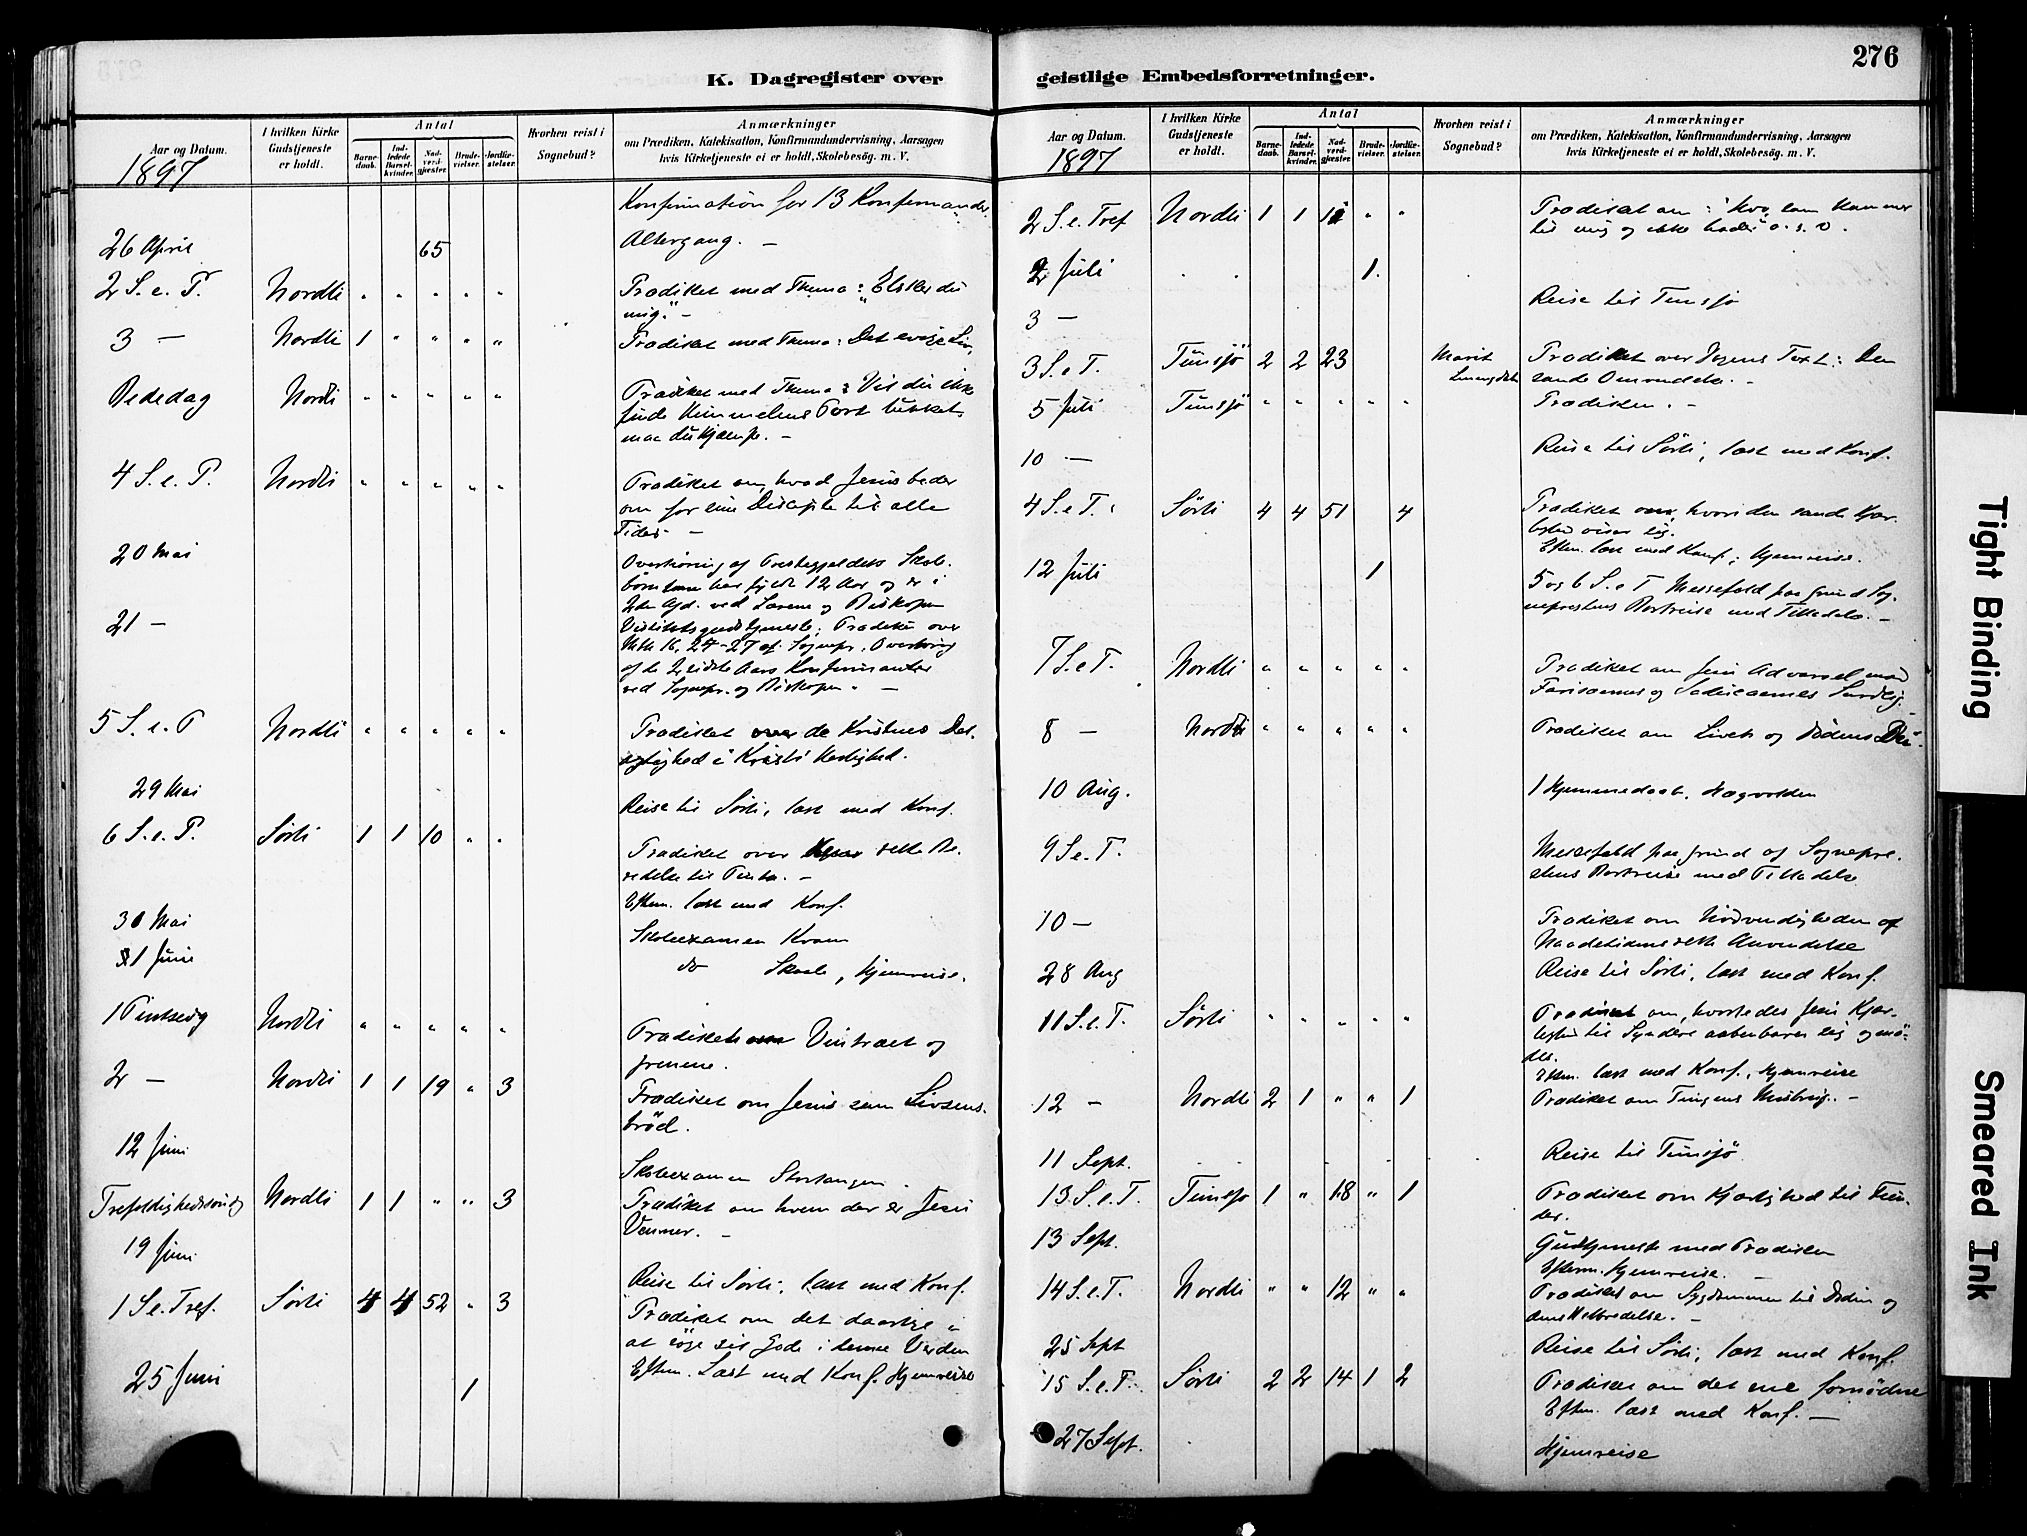 276
K. Dagregister over
geistlige Embedsforretninger.
Aar og Datum.
1897
I hvilken Kirke Gudstjeneste er holdt.
Antal
Barnedaab.
Indledede Barselkvinder.
Nadverdgjester.
Brudevielser.
Jordfæstelser.
Hvorhen reist i Sognebud?
Anmærkninger
om Prædiken, Katekisation, Konfirmandundervisning, Aarsagen
hvis Kirketjeneste ei er holdt, Skolebesög. m. V.
Konfirmation for 13 Konfirmander.
26 April 65 Altergang. —
2 S. e. P. Nordli " " " " " Prædiket med Thema: "Elsker du
mig." —
3 — Nordli 1 " " " " Prædiket med Thema: Det evige Liv.
Bededag Nordli " " " " " Prædiket med Thema: Vil du ikke
finde Himmelens Port lukket,
maa du kjæmpe. —
4 S. e. P. Nordli " " " " " Prædiket om, hvad Jesus beder
om for sine Disciple til alle
Tider. —
20 Mai Overhöring af Prestegjeldets Skole-
börn som har fyldt 12 Aar og er i
2den Afd. ved Lærerne og Biskopen
21 — Visitatsgudstjeneste; Prædiken over
Mth 16, 24-27 af Sognepr. Overhöring
af de 2 sidste Aars Konfirmanter
ved Sognepr. og Biskopen. —
5 S. e. P Nordli " " " " " Prædiket over de Kristnes Del-
agtighed i Kristi Herlighed.
29 Mai Reise til Sörli, læst med Konf.
6 S. e. P. Sörli 1 1 10 " " Prædiket over rette Be-
redelse til Pintse. —
Eftm. læst med Konf.
30 Mai Skoleexamen Kvam
1 Juni do Skaale, Hjemreise.
1 Pintsedg Nordli " " " " " Prædiket om Vintræet og
grenene.
2 — Nordli 1 1 19 " 3 Prædiket om Jesus som Livsens-
bröd.
12 Juni Skoleexamen Stortangen.
Trefoldighedssöndg Nordli 1 1 " " 3 Prædiket om hvem der er Jesu
Venner. —
19 Juni Reise til Sörli, læst med Konf.
1 S e. Tref. Sörli 4 4 52 " 3 Prædiket om det daarlige i
at söge sit Gode i denne Verden
Eftm. Læst med Konf. Hjemreise
25 Juni 1
Aar og Datum.
1897
I hvilken Kirke Gudstjeneste er holdt.
Antal
Barnedaab.
Indledede Barselkvinder.
Nadverdgjester.
Brudevielser.
Jordfæstelser.
Hvorhen reist i Sognebud?
Anmærkninger
om Prædiken, Katekisation, Konfirmandundervisning, Aarsagen
hvis Kirketjeneste ei er holdt, Skolebesög. m. V.
2 S. e. Tref Nordli 1 1 11 " " Prædiket om: "Hvo, som kommer
til mig og ikke hader o. s. v.
2 Juli 1.
3 — Reise til Tunsjö
3 S. e T. Tunsjö 2 2 23 Marit Prædiket over Dagens Text: Den
sande Omvendelse. —
5 Juli Tunsjö " " " " " Prædiken. —
10 — Reise til Sörli, læst med Konf.
4 S. e T. Sörli 4 4 51 4 Prædiket om, hvori den sande Kjær-
lighed viser sig.
Eftm. læst med Konf.; Hjemreise.
12 Juli 1
5 og 6 S. e T Messefald paa grund Sog-
neprestens Bortreise med Tilladelse. —
7 S. e T. Nordli " " " " " Prædiket om Jesu Advarsel mod
Farisæernes og Saducæernes Surdeig. —
8 — Nordli " " " " " Prædiket om Livets og Dödens
10 Aug. 1 Hjemmedaab,
9 S e. T. Messefald paa grund af Sognepre-
stens Bortreise med Tilladelse
10 — Prædiket om Nödvendigheden af
Naadetidens rette Anvendelse
28 Aug Reise til Sörli, læst med Konf.
11 S. e. T. Sörli " " " " " Prædiket om, hvorledes Jesu Kjær-
lighed til Syndere aabenbarer sig og mö-
des.
Eftm. læst med Konf., Hjemreise
12 — Nordli 2 1 " " 1 Prædiket om Tungens Misbrug. —
11 Sept. Reise til Tunsjö.
13 S. e. T. Tunsjö 1 " 18 " 1 Prædiket om Kjærlighed til Fien-
der.
13 Sept. Gudtjeneste med Prædiken
Eftm. Hjemreise. —
14 S. e. T. Nordli " " 12 " " Prædiket om Sygdommen til Döden og
dens Helbredelse. —
25 Sept Reise til Sörli, læst med Konf.
15 S. e. T. Sörli 2 2 14 1 2 Prædiket om det ene fornödne
Eftm. læst med Konf. —
27 Sept. Hjemreise
Tight Binding
Smeared Ink